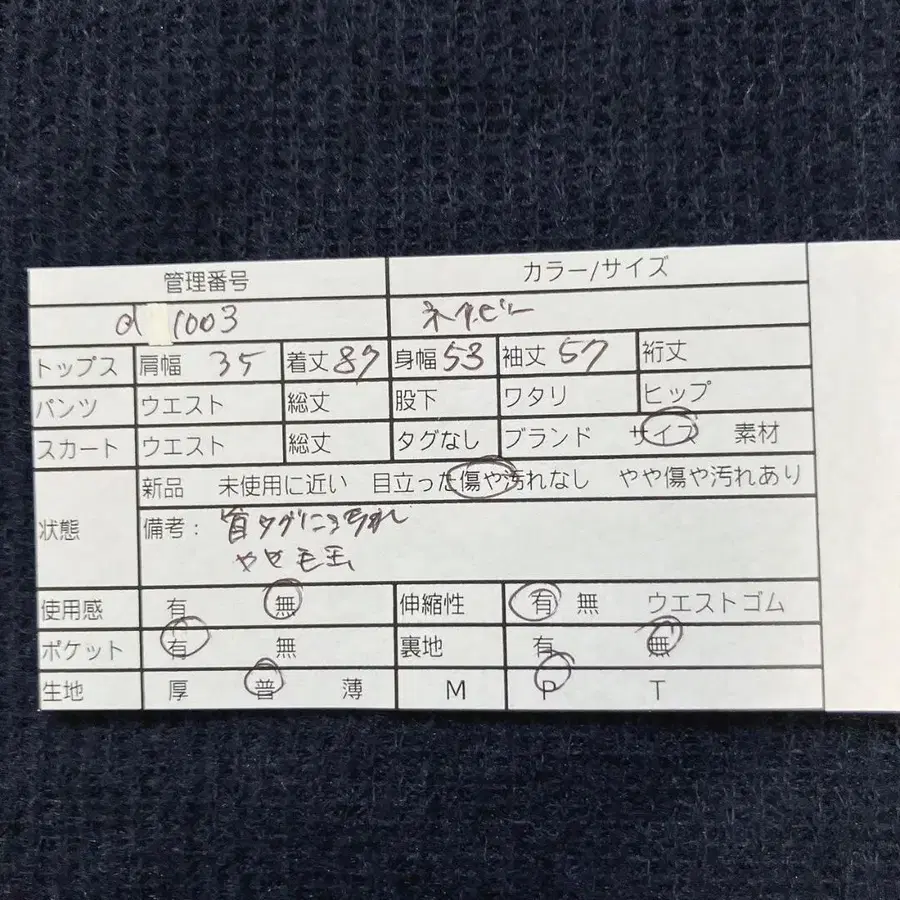 管理番号 カラー/サイズ
d 1003 ネイビー
トップス 肩幅 35 着丈 87 身幅 53 袖丈 57 裄丈
パンツ ウエスト 総丈 股下 ワタリ ヒップ
スカート ウエスト 総丈 タグなし ブランド サイズ 素材
状態 新品 未使用に近い 目立った傷や汚れなし やや傷や汚れあり
備考: 首タグに汚れ
やや毛玉
使用感 有 無 伸縮性 有 無 ウエストゴム
ポケット 有 無 裏地 有 無
生地 厚 普 薄 M P T